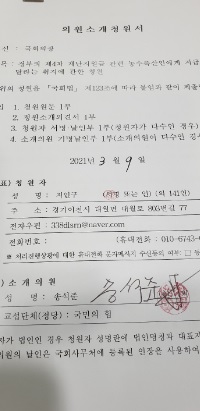 의원소개청원서
신 : 국회의장
정부의 제4차 재난지원금 관련 농수축산인에게 지급
달라는 취지에 관한 청원
위의 청원을 「국회법」 제123조에 따라 붙임과 같이 제출
1. 청원원문 1부
2. 소개의견서 1부
3. 청원자 서명 날인부 1부(청원자가 다수인 경우)
4. 소개의원 기명날인부 1부(소개의원이 다수인 경
2021년 3월 9일
표) 청원자
성 명 : 지안구 (서명 또는 인) (외 141인)
주 소 : 경기이천시 대월면 대월로 803번길 77
전자우편 : @naver.com
전화번호 : (휴대전화 : 010-6743-
※ 처리진행상황에 대한 휴대전화 문자메시지 수신동의 여부 :
소개의원
성 명 : 송석준
교섭단체(정당) : 국민의힘
자가 법인인 경우 청원자 성명란에 법인명칭과 대표자
의원의 날인은 국회사무처에 등록된 인장을 사용하여